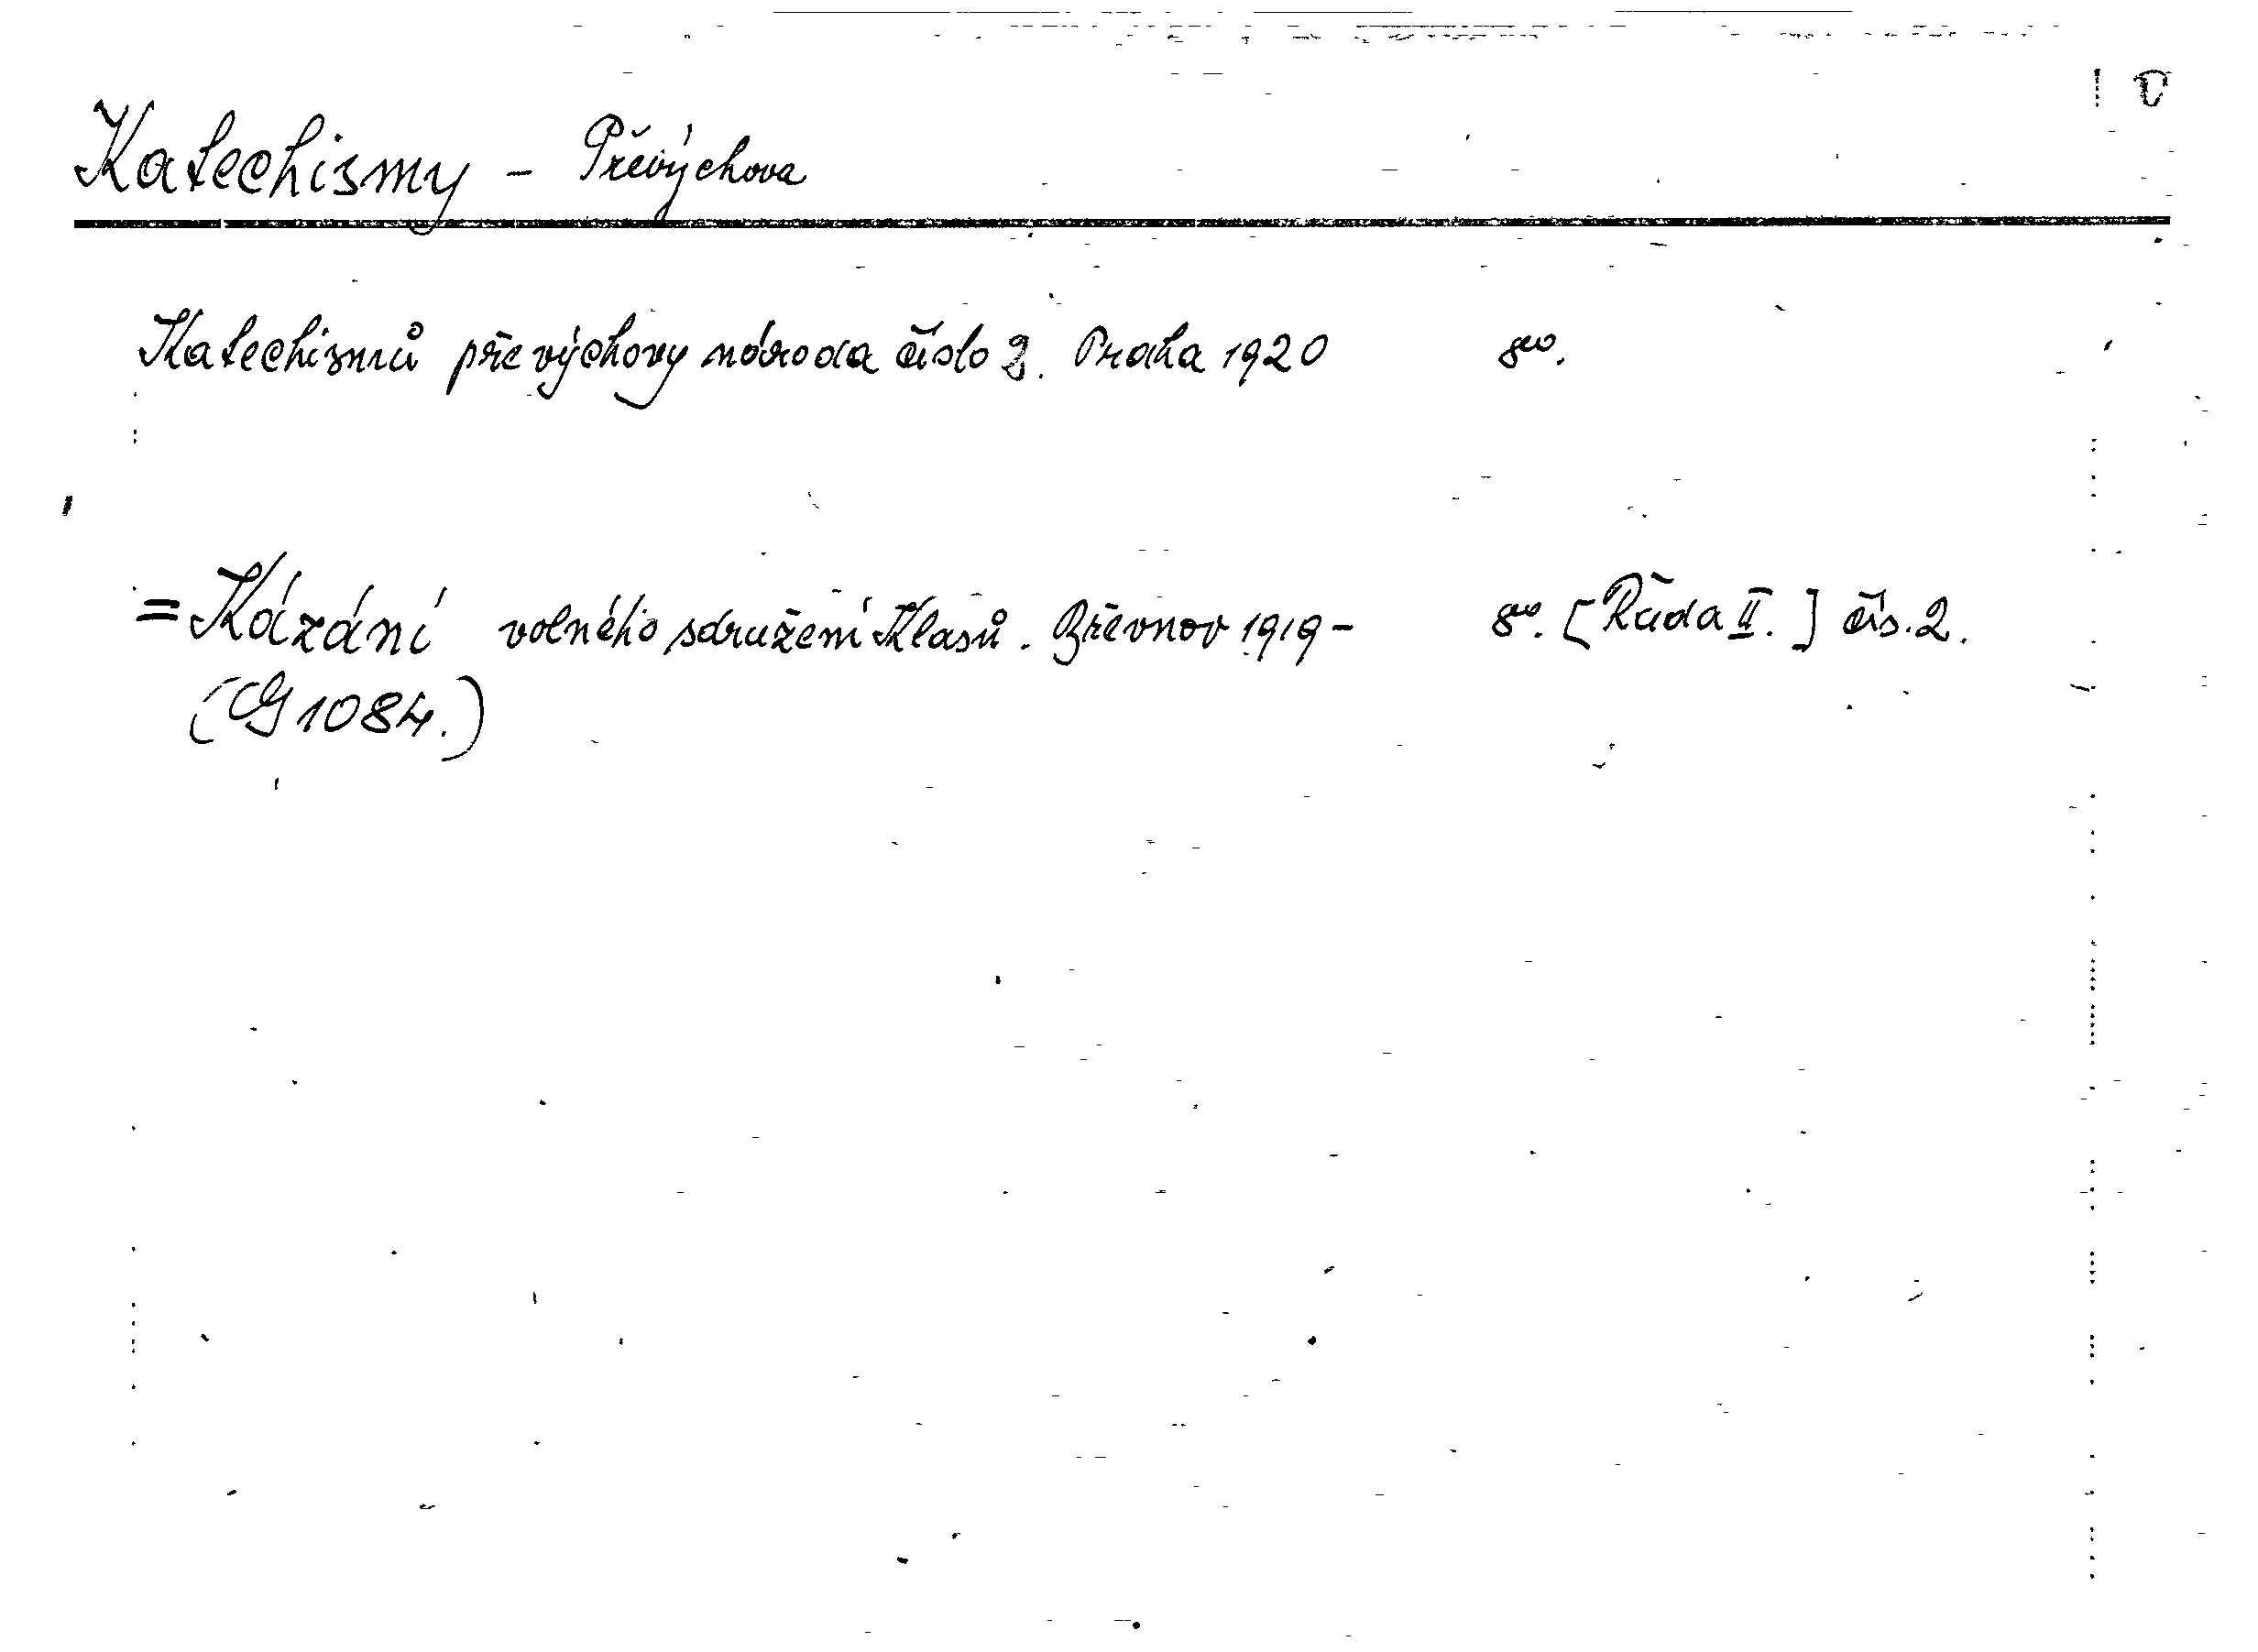 Katechismy - Převýchova
Katechismů převýchovy národa číslo 2. Praha 1920 8vo.
= Kázání volného sdružení Klasů. Břevnov 1919 - 8vo. [Řada II.] čís. 2.
(G 1084.)